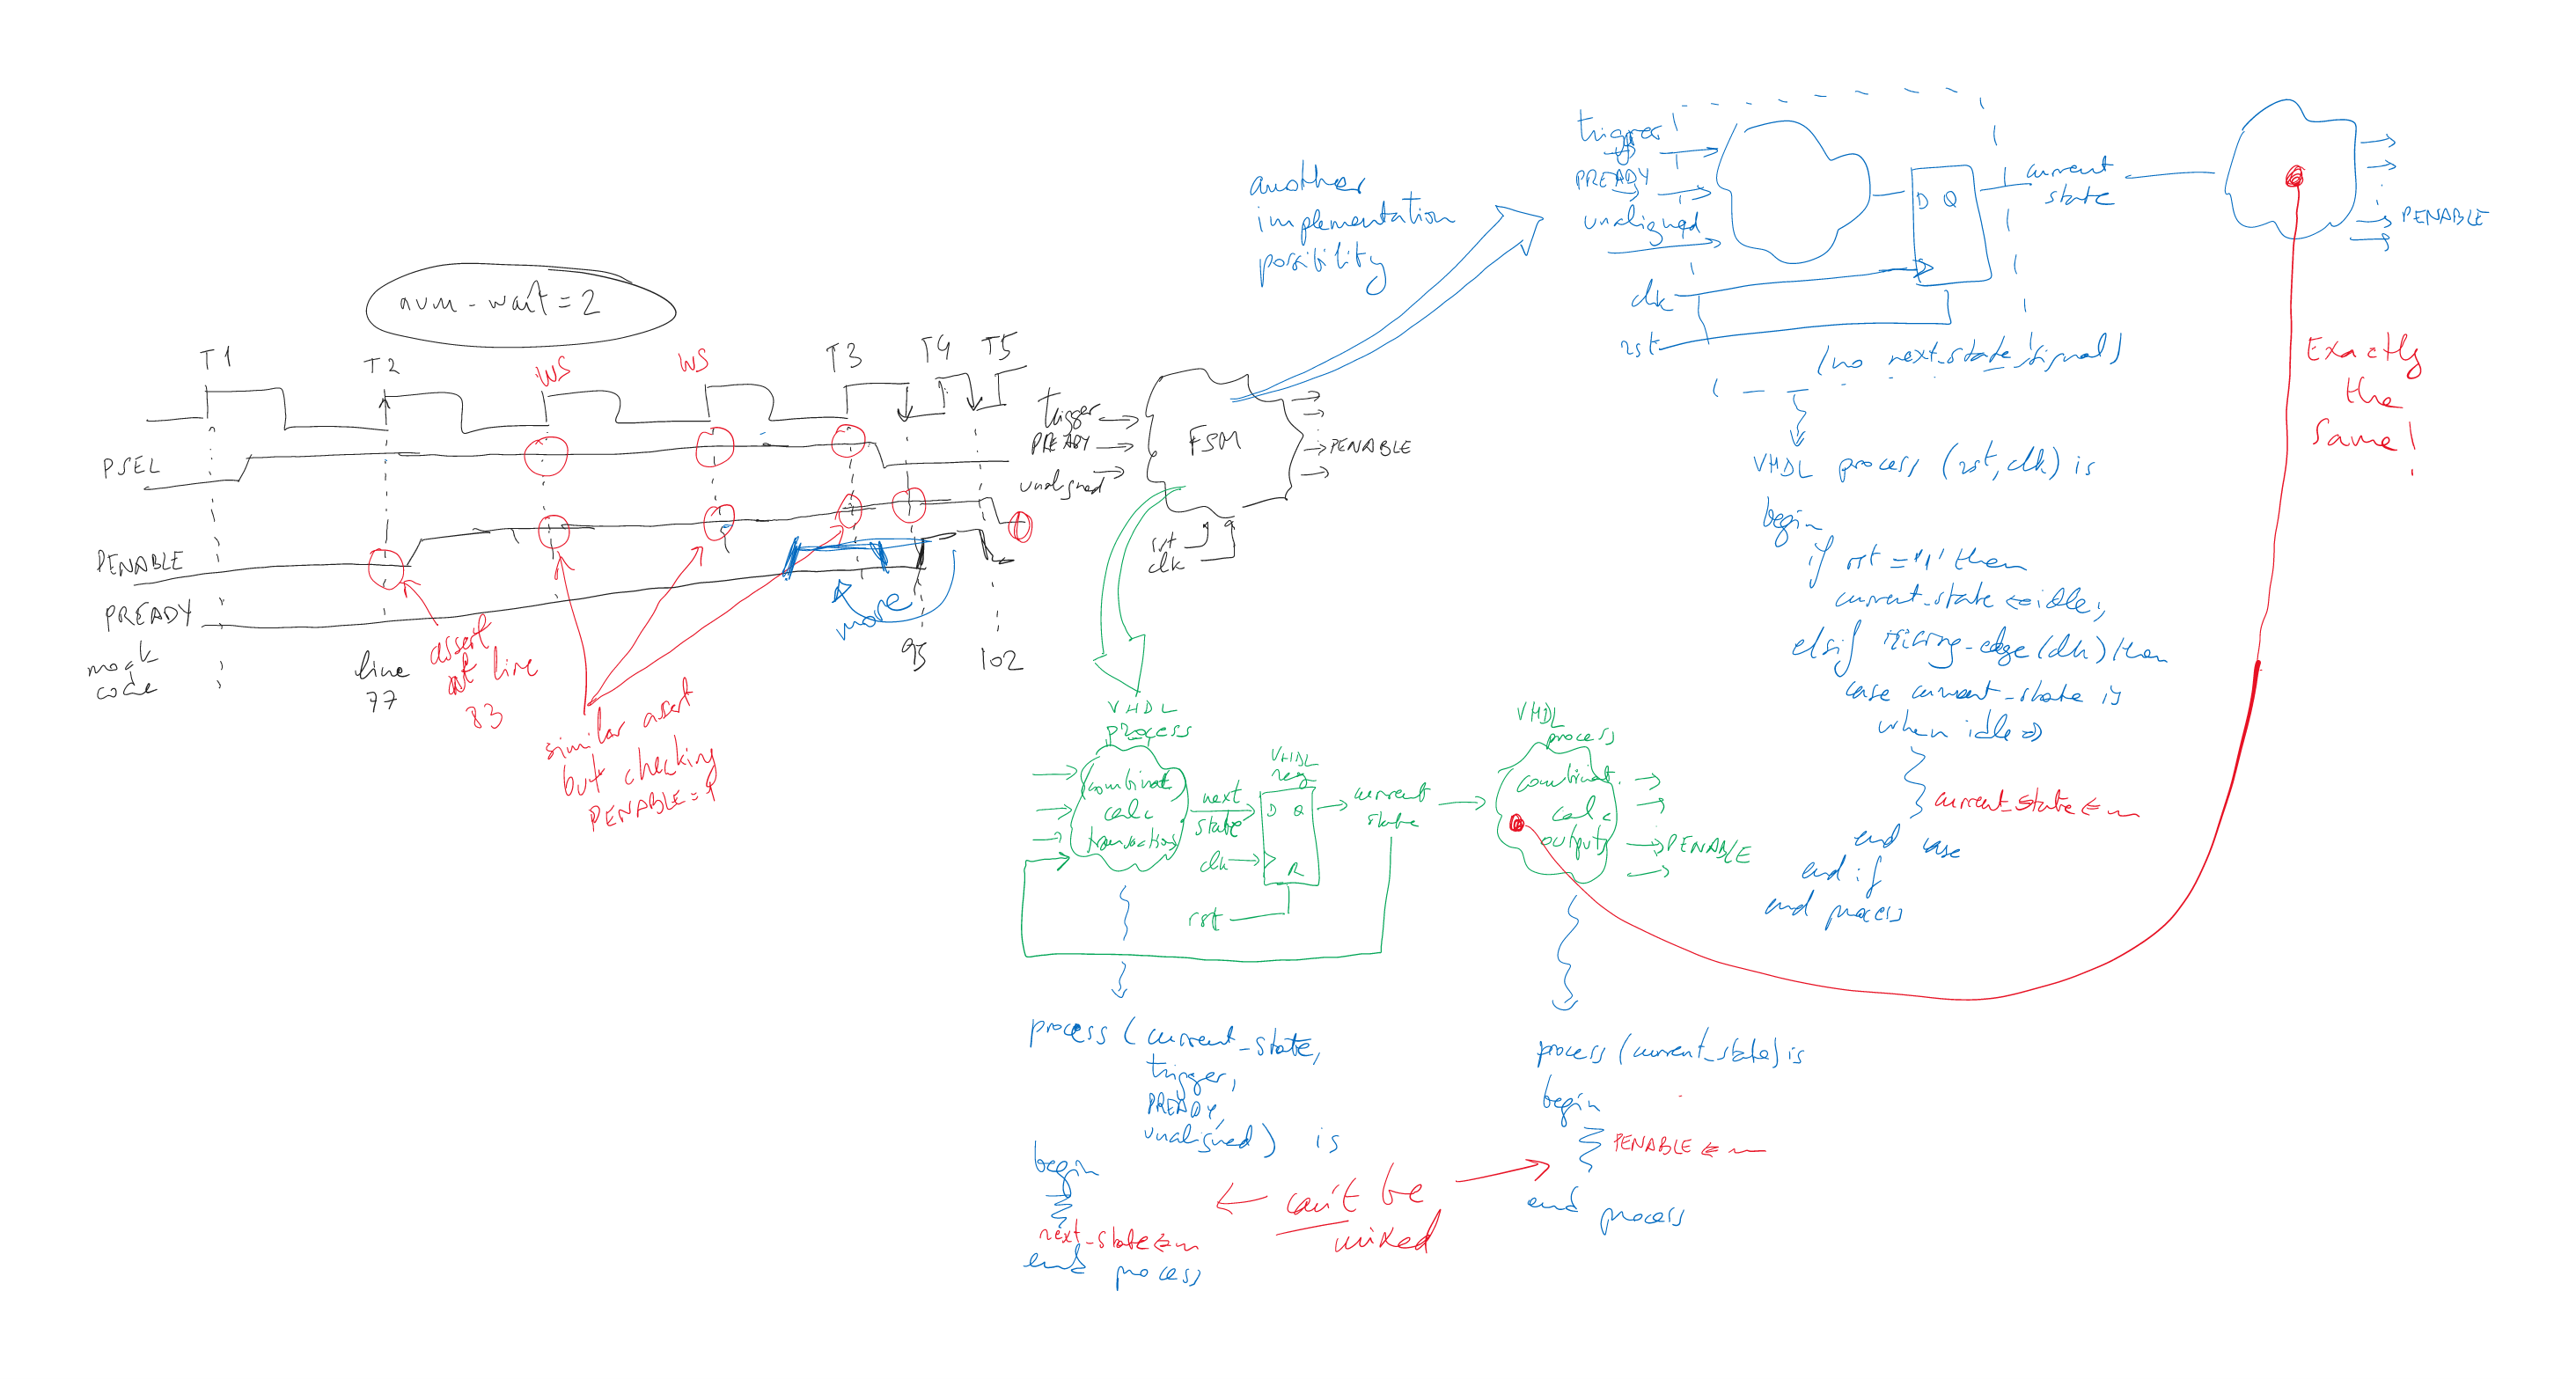 num-wait=2
T1
T2
WS
WS
T3
T4
T5
PSEL
PENABLE
PREADY
mock
code
line
77
assert
at line
83
similar assert
but checking
PENABLE=1
move
95
102
trigger
PREADY
unaligned
FSM
PENABLE
rst
clk
another
implementation
possibility
trigger
PREADY
unaligned
D Q
clk
rst
current
state
PENABLE
(no next_state signal)
Exactly
the
same!
VHDL process (rst, clk) is
begin
if rst = '1' then
current_state <= idle;
elsif rising-edge(clk) then
case current_state is
when idle =>
current_state <=
end case
end if
end process
VHDL
process
combinat
calc
transactions
next
state
VHDL
reg
D Q
clk
R
rst
current
state
VHDL
process
combinat.
calc
outputs
PENABLE
process (current_state,
trigger,
PREADY,
unaligned) is
begin
next_state <=
end process
can't be
mixed
process (current_state) is
begin
PENABLE <=
end process